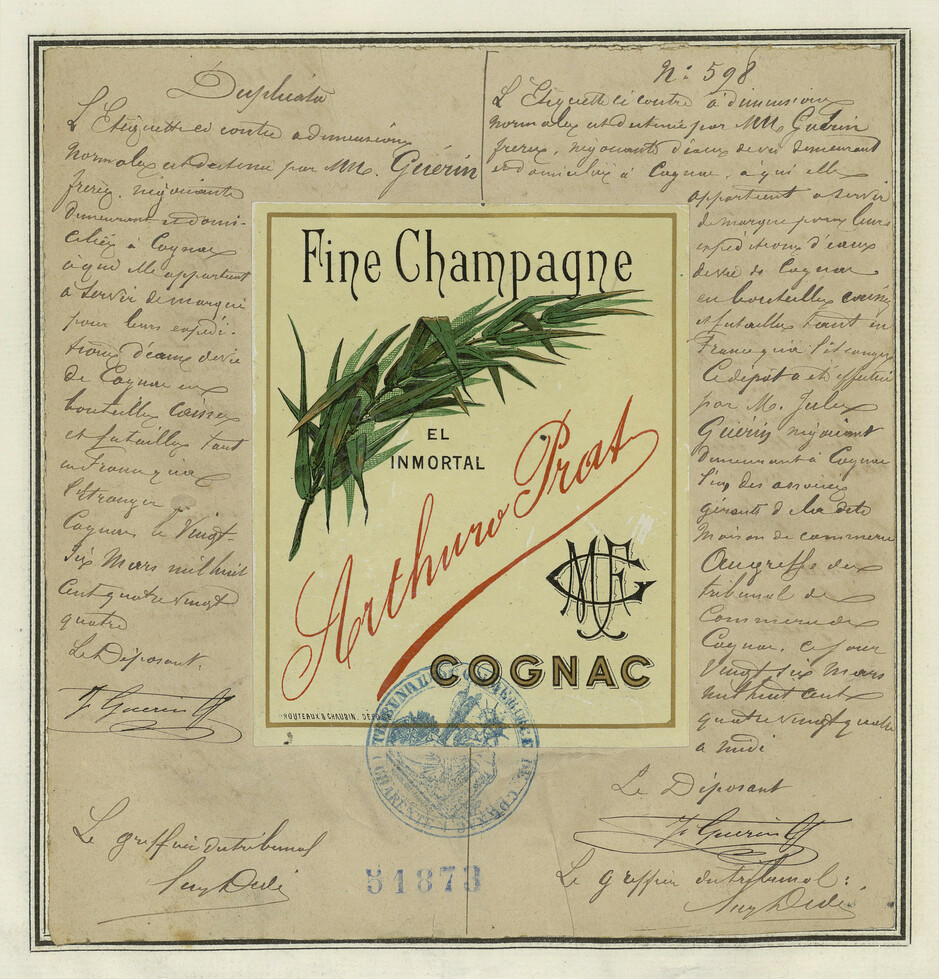 Duplicata
L'Etiquette ci contre a dimensions
normales est destinée par MM. Guérin
frères, négociants
demeurant et domi-
ciliés à Cognac
à qui elle appartient
a servir de marque
pour leurs expédi-
tions d'eaux de vie
de Cognac en
bouteilles caisses
et futailles tant
en France qu'a
l'étranger
Cognac le Vingt-
Six Mars mil huit
Cent quatre vingt
quatre
Le Déposant:
J. Guérin
Le greffier du tribunal
N: 598
L'Etiquette ci contre à dimensions
normales est destinée par MM. Guérin
frères, négociants d'eaux de vie demeurant
et domiciliés à Cognac, a qui elle
appartient a servir
de marque pour leurs
expéditions d'eaux
de vie de Cognac
en bouteilles caisses
et futailles tant en
France qu'a l'étranger
Ce dépôt a été effectué
par M. Jules
Guérin négociant
demeurant à Cognac
l'un des associés
gérants de la dite
Maison de commerce
Au greffe du
tribunal de
Commerce de
Cognac, ce jour
Vingt six Mars
mil huit cent
quatre vingt quatre
a midi
Le Déposant
J. Guérin
Le greffier du tribunal:
Fine Champagne
EL
INMORTAL
Arthuro Prat
COGNAC
TRIBUNAL DE COMMERCE DE COGNAC
(CHARENTE)
51873